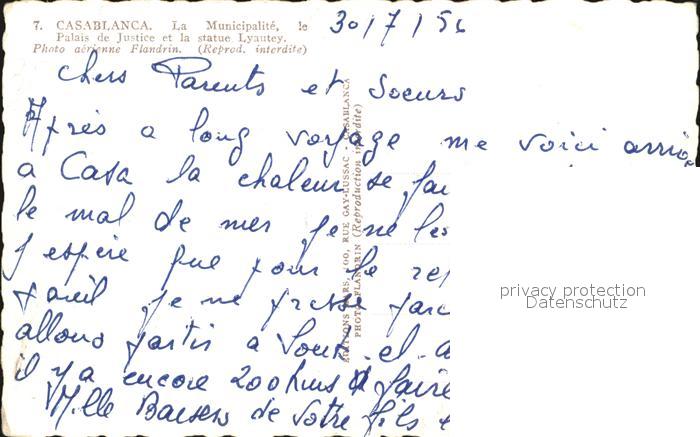 7. CASABLANCA. La Municipalité, le
Palais de Justice et la statue Lyautey.
Photo aérienne Flandrin. (Reprod. interdite)
30/7/56
Chers Parents et Soeurs
Après a long voyage me voici arrivé
a Casa la chaleur se fai
le mal de mer je ne les
j'espère que pour le re
pareil je ne presse parc
allons partir a Sous el a
il y a encore 200 kms a faire
Mille Baisers de Votre fils e
EDITIONS MARS, 100, RUE GAY-LUSSAC - CASABLANCA
PHOTO FLANDRIN (Reproduction interdite)
privacy protection
Datenschutz